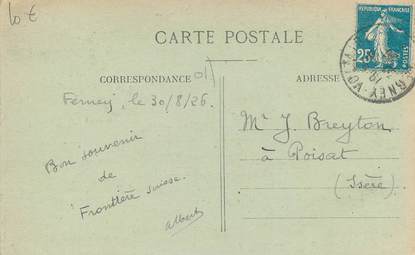 10 €
CARTE POSTALE
REPUBLIQUE FRANÇAISE
25
CORRESPONDANCE
01
ADRESSE
Ferney, le 30/8/26.
Bon souvenir
de
Frontière suisse.
Albert
Mr J. Breyton
à Poisat
(Isère)